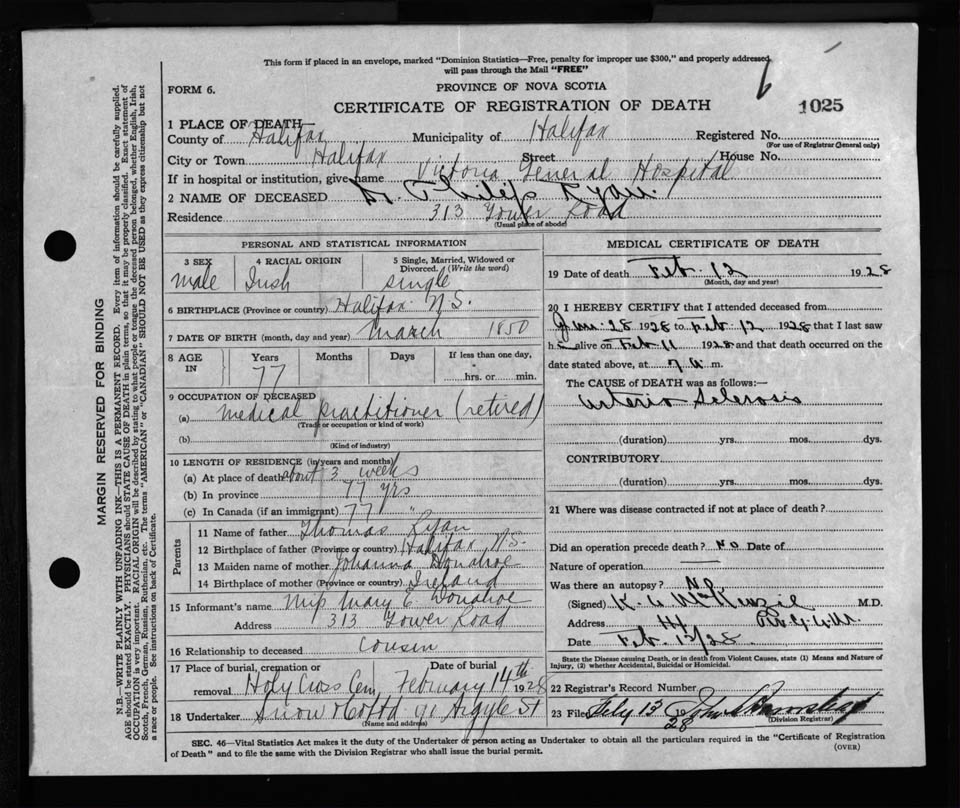 This form if placed in an envelope, marked "Dominion Statistics—Free, penalty for improper use $300," and properly addressed,
will pass through the Mail "FREE"
FORM 6.
PROVINCE OF NOVA SCOTIA
6
CERTIFICATE OF REGISTRATION OF DEATH
1025
1 PLACE OF DEATH—
County of Halifax Municipality of Halifax Registered No.
(For use of Registrar General only)
City or Town Halifax Street House No.
If in hospital or institution, give name Victoria General Hospital
2 NAME OF DECEASED Dr. Philip Ryan.
Residence 313 Tower Road
(Usual place of abode)
PERSONAL AND STATISTICAL INFORMATION
3 SEX 4 RACIAL ORIGIN 5 Single, Married, Widowed or
Divorced. (Write the word)
male Irish single
6 BIRTHPLACE (Province or country) Halifax N.S.
7 DATE OF BIRTH (month, day and year) March 1850
8 AGE IN Years Months Days If less than one day,
77 hrs. or min.
9 OCCUPATION OF DECEASED
(a) Medical practitioner (retired)
(Trade or occupation or kind of work)
(b)
(Kind of industry)
10 LENGTH OF RESIDENCE (in years and months)
(a) At place of death about 3 weeks
(b) In province 77 yrs
(c) In Canada (if an immigrant) 77 "
Parents
11 Name of father Thomas Ryan
12 Birthplace of father (Province or country) Halifax N.S.
13 Maiden name of mother Johanna Donahoe
14 Birthplace of mother (Province or country) Ireland
15 Informant's name Miss Mary E Donahoe
Address 313 Tower Road
16 Relationship to deceased Cousin
17 Place of burial, cremation or Date of burial
removal Holy Cross Cem February 14th 1928
18 Undertaker Snow & Co Ltd 90 Argyle St
(Name and address)
MEDICAL CERTIFICATE OF DEATH
19 Date of death Feb. 12 1928
(Month, day and year)
20 I HEREBY CERTIFY that I attended deceased from
Jan. 28 1928 to Feb. 12 1928 that I last saw
h alive on Feb 11 1928 and that death occurred on the
date stated above, at 7 a. m.
The CAUSE OF DEATH was as follows:—
Arterio Sclerosis
(duration) yrs. mos. dys.
CONTRIBUTORY
(duration) yrs. mos. dys.
21 Where was disease contracted if not at place of death?
Did an operation precede death? No Date of
Nature of operation
Was there an autopsy? No
(Signed) McKenzie M.D.
Address
Date Feb. 13/28
State the Disease causing Death, or in death from Violent Causes, state (1) Means and Nature of
Injury, (2) whether Accidental, Suicidal or Homicidal.
22 Registrar's Record Number
23 Filed Feb'y 13 1928 John
(Division Registrar)
SEC. 46—Vital Statistics Act makes it the duty of the Undertaker or person acting as Undertaker to obtain all the particulars required in the "Certificate of Registration
of Death" and to file the same with the Division Registrar who shall issue the burial permit.
(OVER)
MARGIN RESERVED FOR BINDING
N.B.—WRITE PLAINLY WITH UNFADING INK—THIS IS A PERMANENT RECORD. Every item of information should be carefully supplied.
AGE should be stated EXACTLY. PHYSICIANS should STATE CAUSE OF DEATH in plain terms, so that it may be properly classified. Exact statement of
OCCUPATION is very important. RACIAL ORIGIN will be described by stating to what people or tongue the deceased person belonged, whether English, Irish,
Scotch, French, German, Russian, Ruthenian, etc. The terms "AMERICAN" or "CANADIAN" SHOULD NOT BE USED as they express citizenship but not
a race or people. See instructions on back of Certificate.